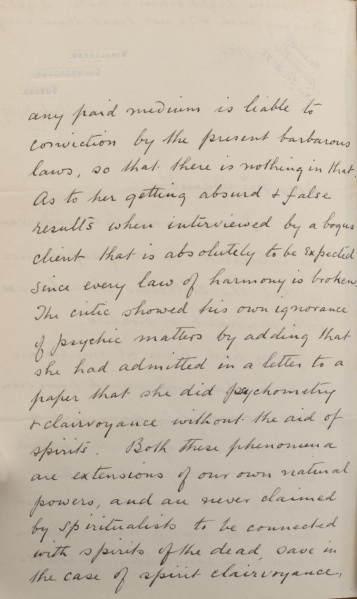 any paid medium is liable to
conviction by the present barbarous
laws, so that there is nothing in that.
As to her getting absurd & false
results when interviewed by a bogus
client that is absolutely to be expected
since every law of harmony is broken
The critic showed his own ignorance
of psychic matters by adding that
she had admitted in a letter to a
paper that she did psychometry
& clairvoyance without the aid of
spirits. Both these phenomena
are extensions of our own natural
powers, and are never claimed
by Spiritualists to be connected
with spirits of the dead, save in
the case of spirit clairvoyance,